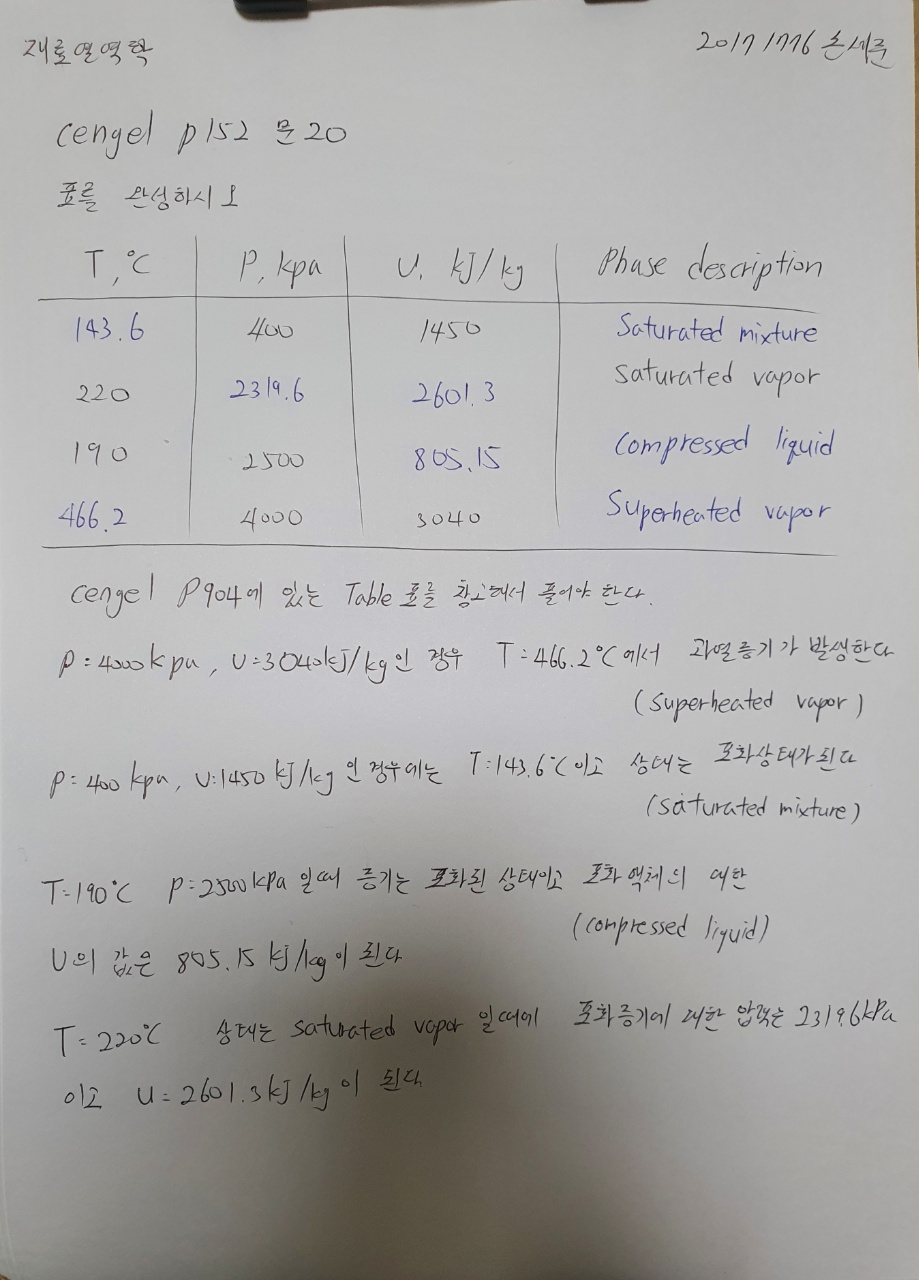 재료열역학
20171776 손세준
cengel p152 문20
표를 완성하시오
T,℃ P, kpa U, kJ/kg Phase description
143.6 400 1450 Saturated mixture
220 2319.6 2601.3 saturated vapor
190 2500 805.15 compressed liquid
466.2 4000 3040 Superheated vapor
cengel P904에 있는 Table 표를 참고해서 풀어야 한다.
P=4000kpa, U=3040kJ/kg인 경우 T=466.2℃에서 과열증기가 발생한다
(superheated vapor)
P=400kpa, U=1450kJ/kg 인 경우에는 T=143.6℃이고 상태는 포화상태가된다
(saturated mixture)
T=190℃ P=2500kPa 일때 증기는 포화된 상태이고 포화액체의 대한
(compressed liquid)
U의 값은 805.15 kJ/kg이 된다
T=220℃ 상태는 saturated vapor 일때에 포화증기에 대한 압력는 2319.6kPa
이고 U=2601.3kJ/kg이 된다